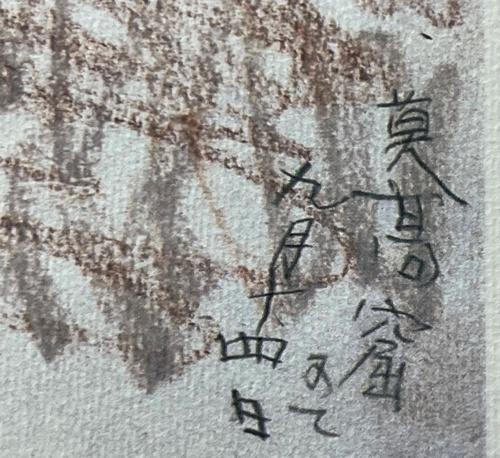 莫高窟にて
九月十四日